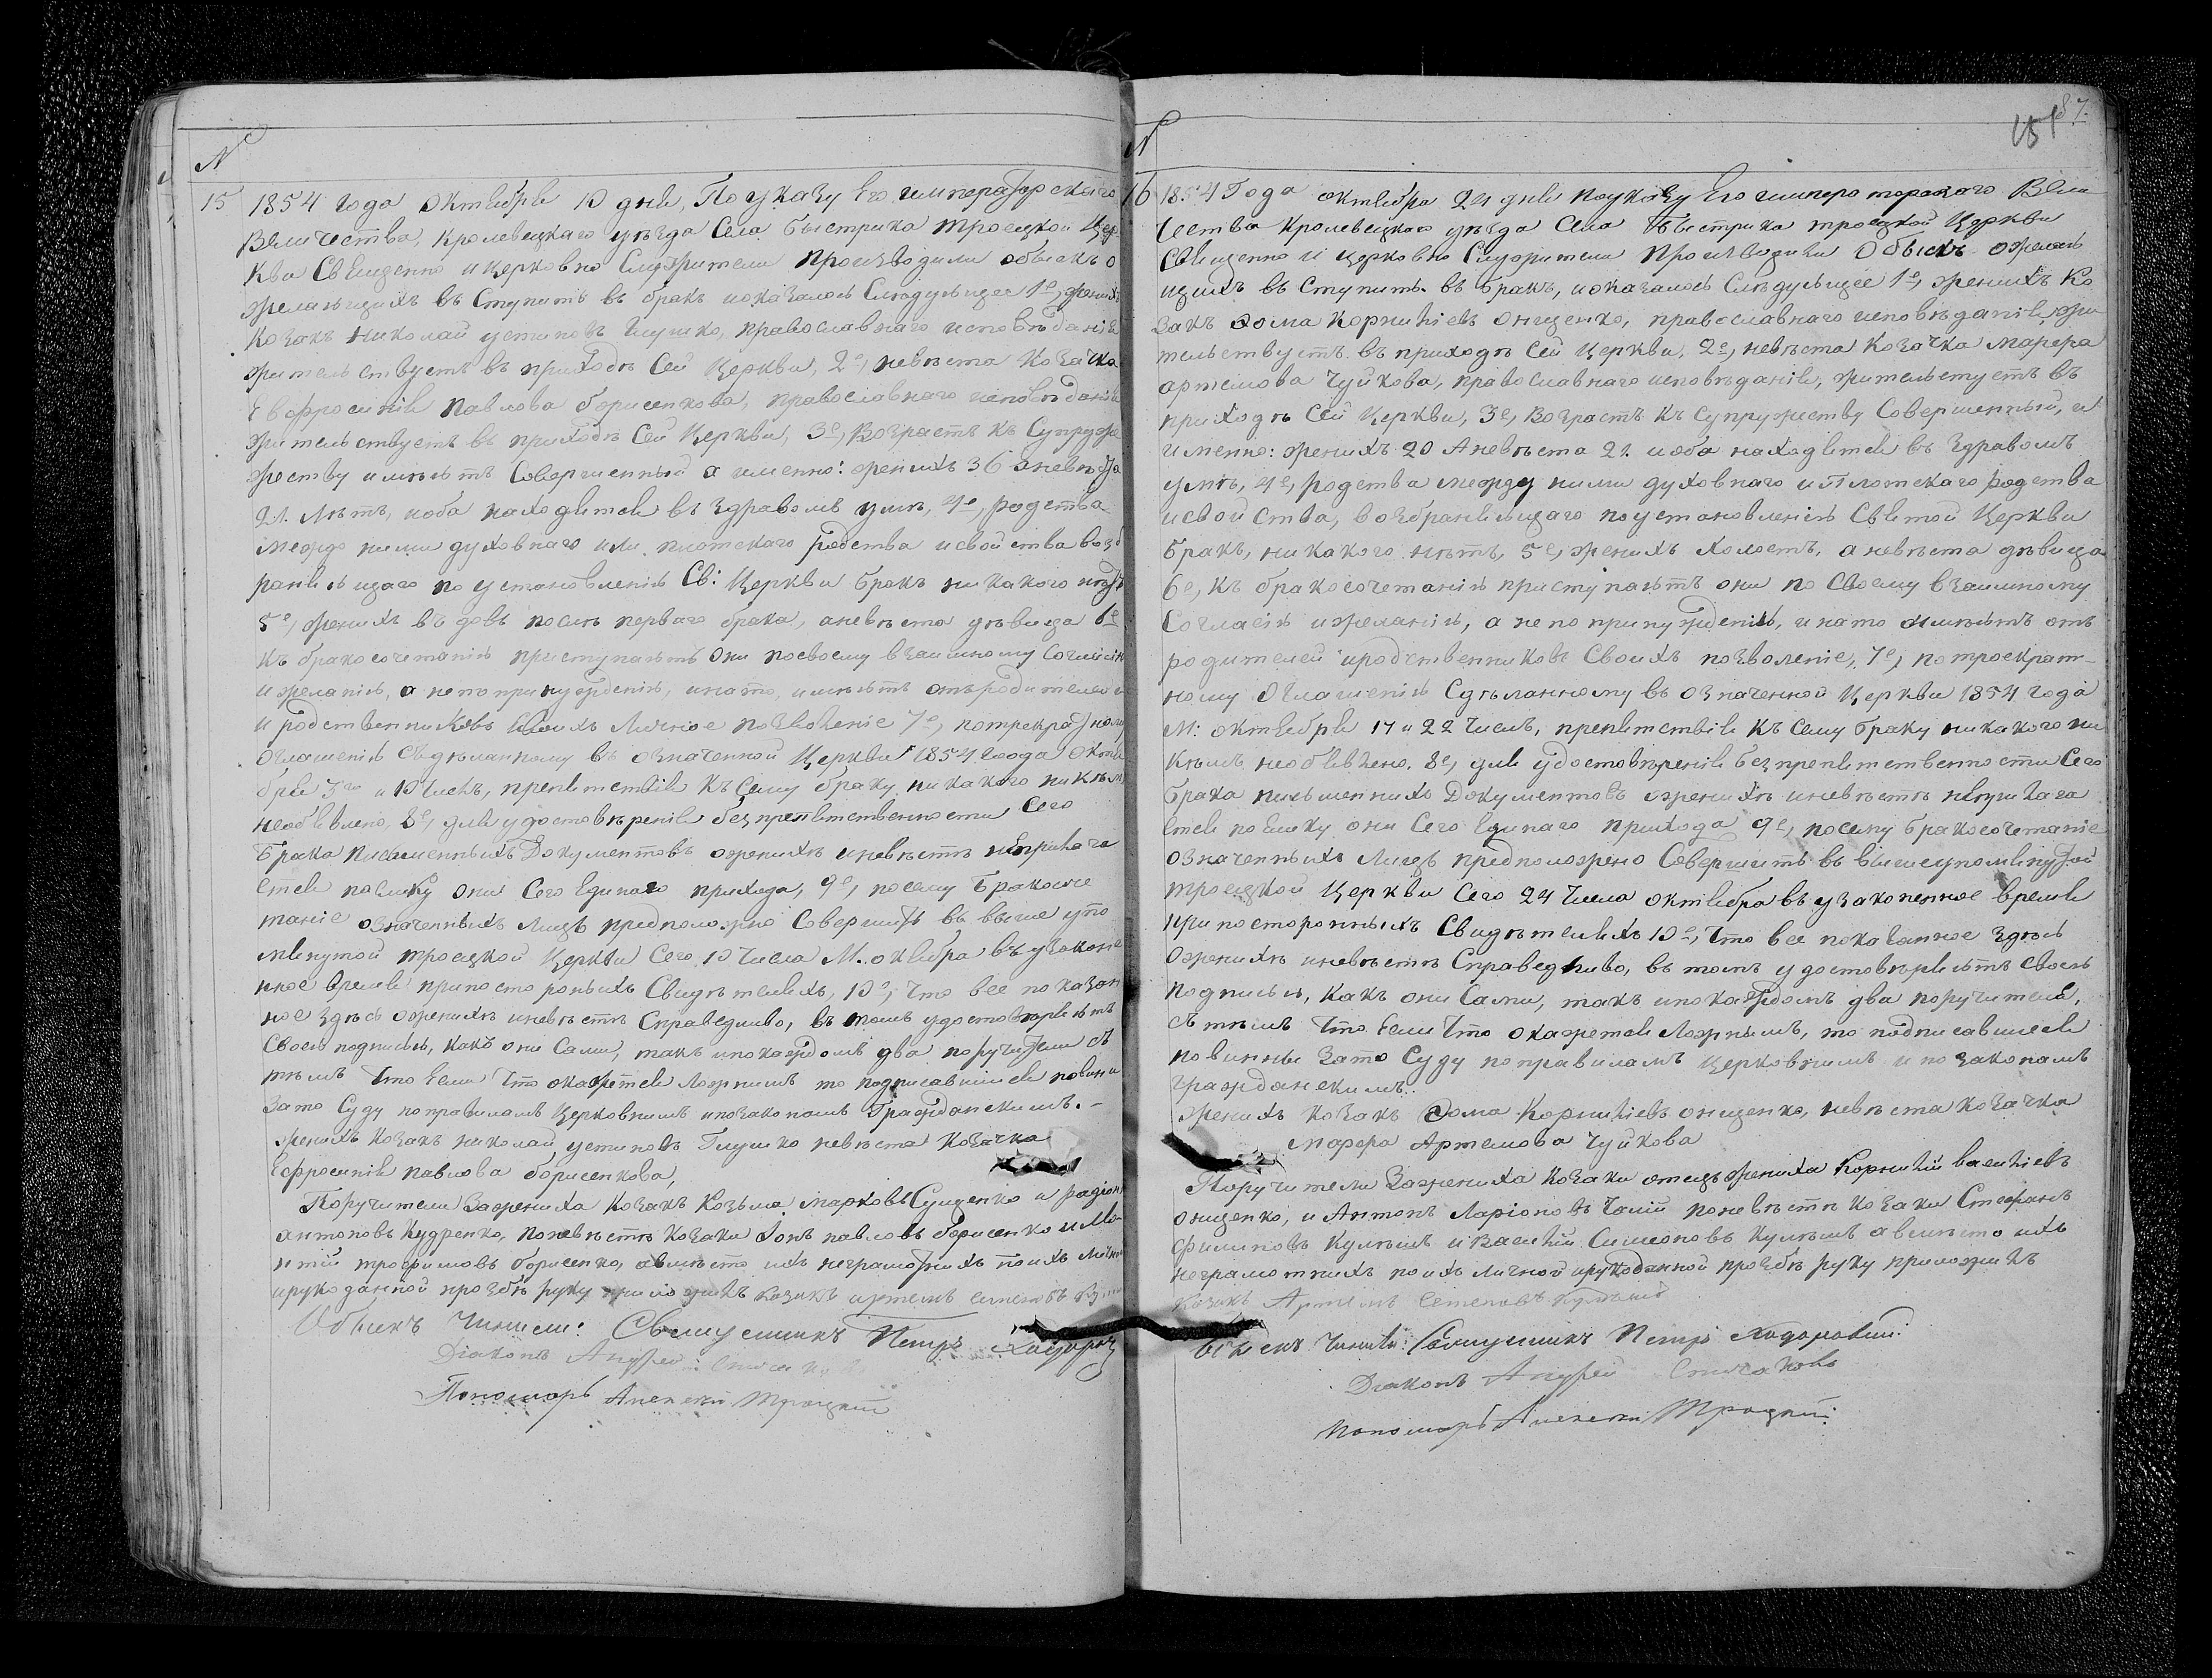 N
15 1854 года Октября 10 дня, По указу Его императорскаго
Величества, Кролевецкаго уѣзда Села Быстрика Троецкой Цер
кви Священно и церковно Служители производили обыскъ о
желающихъ въ Ступить въ бракъ и оказалось Слѣдующее 1е, женихъ
Козакъ Николай устиновъ Глушко, православнаго исповѣданія
жительствуетъ въ приходѣ Сей Церкви, 2е, невѣста Козачка
Евфросинія Павлова борисенкова, православнаго исповѣданія
жительствуетъ въ приходѣ Сей Церкви, 3е, Возрастъ къ Супруже
жеству имѣютъ Совершенный а именно: женихъ 36 а невѣста
21. Лѣтъ, и оба находятся въ здравомъ умѣ, 4е, родства
между ними духовнаго или плотскаго родства и свойства возб
раняющаго по установленію Св: Церкви бракъ никакого нѣтъ
5е, женихъ въ довъ послѣ перваго брака, а невѣста дѣвица 6е
къ бракосочетанію приступаютъ Они по своему взаимному Согласію
и желанію, а не по принужденію, и на то, имѣютъ отъ родителей
и родственниковъ Своихъ Личное позволеніе 7е, по трекратному
Оглашенію Сдѣланному въ означенной Церкви 1854 года Октя
бря 3го и 10 числъ, препятствія къ Сему браку никакого никѣмъ
необъявлено, 8е, для удостовѣренія безпрепятственности Сего
брака писменныхъ Документовъ о женихѣ и невѣстѣ неприлага
ется поелику они Сего Единаго прихода, 9е, посему бракосоче
таніе означенныхъ Лицъ предположено Совершить въ выше упо
мянутой троецкой Церкви Сего 10 числа М. октября въ узаконе
нное время при посторонихъ Свидѣтеляхъ, 10е, Что все показан
ное здѣсь о женихѣ и невѣстѣ Справедливо, въ томъ удостовѣряютъ
Своею подписью, какъ они Сами, такъ и по каждомъ два поручители съ
тѣмъ Что Если Что окажется Ложнымъ то подписавшіеся повины
за то Суду по правиламъ Церковнымъ и по законамъ Гражданскимъ.-
женихъ Козакъ николай устиновъ Глушко невѣста Козачка
Ефросинія павлова борисенкова,
Поручители За жениха Козакъ Козьма марковъ Сущенко и радіонъ
антоновъ Кудренко, По невѣстѣ Козаки павловъ борисенко и
трофимовъ борисенко, а вмѣсто ихъ неграмотнихъ по ихъ личной
и рукоданной прозбѣ руку приложилъ Козакъ артемъ семеновъ
Обыскъ Чинили: Священникъ Петръ Ходоров
Діаконъ Андрей
Пономарь Алексей Троцкий
N
87.
16 1854 Года октября 24 дня по указу Его императорскаго Вели
чества Кролевецкаго уѣзда Села Быстрика троецкой Церкви
Священно и церковно Служители Производили Обыскъ о желаю
щихъ въ Ступить въ бракъ, и оказалось Слѣдующее 1е, женихъ Ко
закъ Фома Корнилиевъ Онищенко, православнаго исповѣданія, жи
тельствуетъ въ приходѣ Сей Церкви, 2е, невѣста Козачка Марфа
артемова Чуйкова, православнаго исповѣданія, жительстуетъ въ
приходѣ Сей Церкви, 3е, Возрастъ къ Супружеству Совершенный, а
именно: женихъ 20 А невѣста 21. и оба находятся въ здравомъ
умѣ, 4е, родства между ними духовнаго и Плотскаго родства
и свойства, возбраняющаго по установленію Святой Церкви
бракъ, никакого нѣтъ, 5е, женихъ холостъ, а невѣста дѣвица
6е, къ бракосочетанію приступаютъ они по Своему взаимному
Согласію и желанію, а не по принужденію, и на то имѣютъ отъ
родителей и родственниковъ Своихъ позволеніе, 7е, по троекрат-
ному Оглашенію Сдѣланному въ означенной Церкви 1854 года
М: октября 17 и 22 числъ, препятствія къ Сему браку никакого ни
кѣмъ необъявлено. 8е, для удостовѣренія безпрепятственности Сего
брака письменнихъ Документовъ о женихѣ и невѣстѣ неприлага
ется поелику они Сего Единаго прихода 9е, посему бракосочетаніе
означенныхъ Лицъ предположено Совершить въ вышеупомянутой
троецкой Церкви Сего 24 Числа октября въ узаконенное время
при посторонныхъ Свидѣтеляхъ 10е, Что все показанное здѣсь
О женихѣ и невѣстѣ Справедливо, въ томъ удостовѣряютъ своею
подписью, какъ они Сами, такъ и по каждомъ два поручителя,
съ тѣмъ Что Если Что окажется Ложнымъ, то подписавшіеся
повинны За то Суду по правиламъ Церковнымъ и по законамъ
гражданскимъ:
женихъ козакъ Фома Корнилиевъ онищенко, невѣста козачка
Марфа Артемова Чуйкова
Поручители За жениха Козаки отецъ жениха Корнилий василиевъ
Онищенко, и Антонъ Ларионовъ по невѣстѣ козаки Стефанъ
филиповъ Кулѣшъ и Василий Симоновъ Кулѣшъ а вмѣсто ихъ
неграмотнихъ по ихъ личной и рукоданной прозбѣ руку приложилъ
Козакъ Артемъ Семеновъ Кулѣшъ
Обыскъ Чинили: Священникъ Петръ Ходоровский:
Діаконъ Андрей
Пономарь Алексей Троцкий: